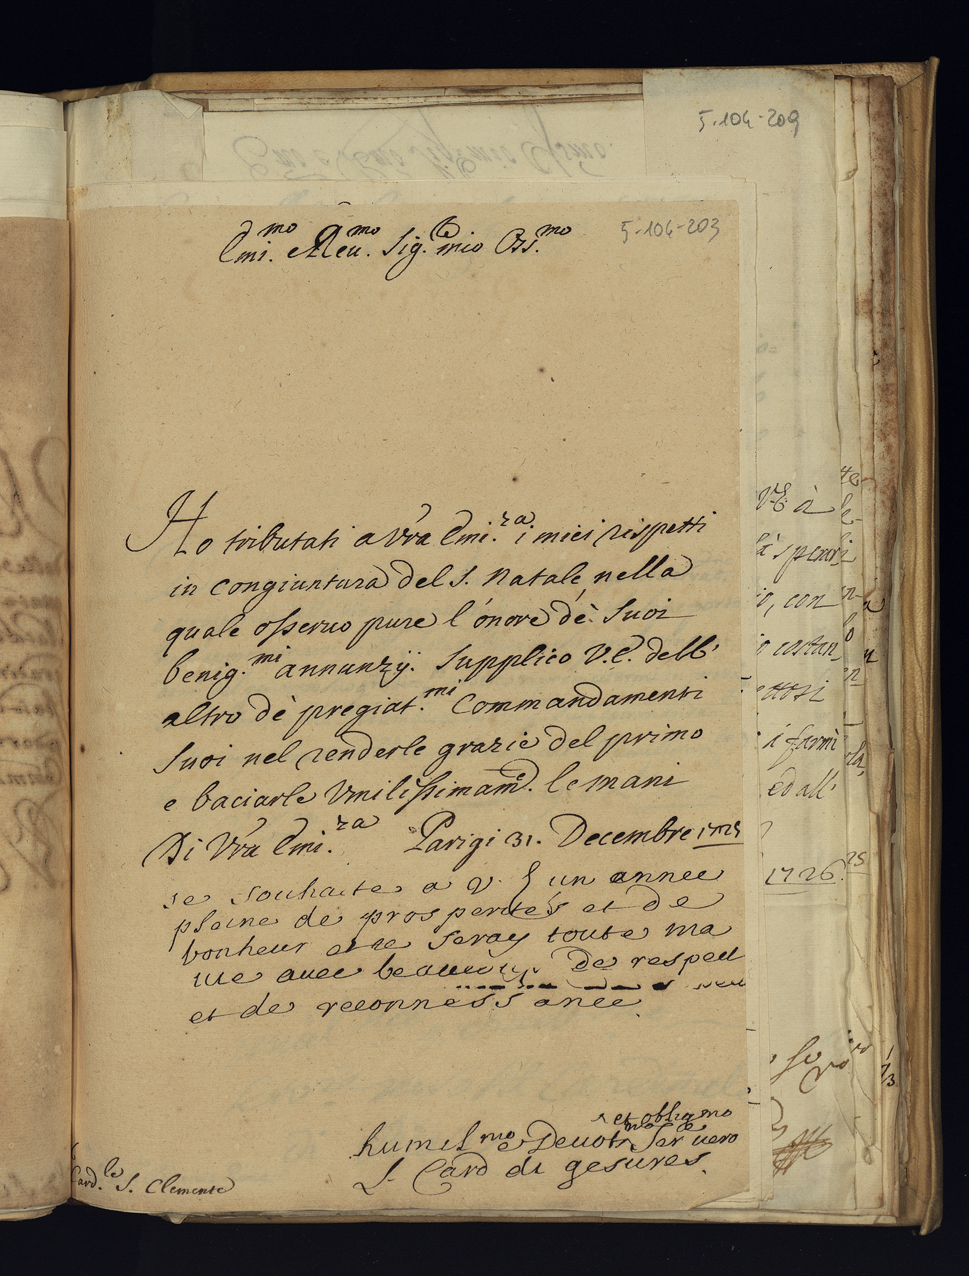 5-104-209
5-104-203
Emi.mo e Reu.mo Sig.re mio Oss.mo
Ho tributati a Vra Emi.za i miei rispetti
in congiuntura del S. Natale nella
quale osseruo pure l'onore de' Suoi
benig.mi annunzÿ. Supplico V.E. dell'
altro dè pregiat.mi Commandamenti
Suoi nel renderle grazie del primo
e baciarle Vmilissimam.e le mani
Di Vra Emi.za Parigi 31. Decembre 1725
ie souhaite a V. E un annee
pleine de prosperités et de
bonheur et ie seray toute ma
uie auec beaucoup de respect
et de reconnessance.
et obligmo
humilmo e Deuotmo Seruero
L. Card di gesures.
Card.le S. Clemente
VE à
sperar
io, con
costan,
ettosi
i farmi
ed all'
1726